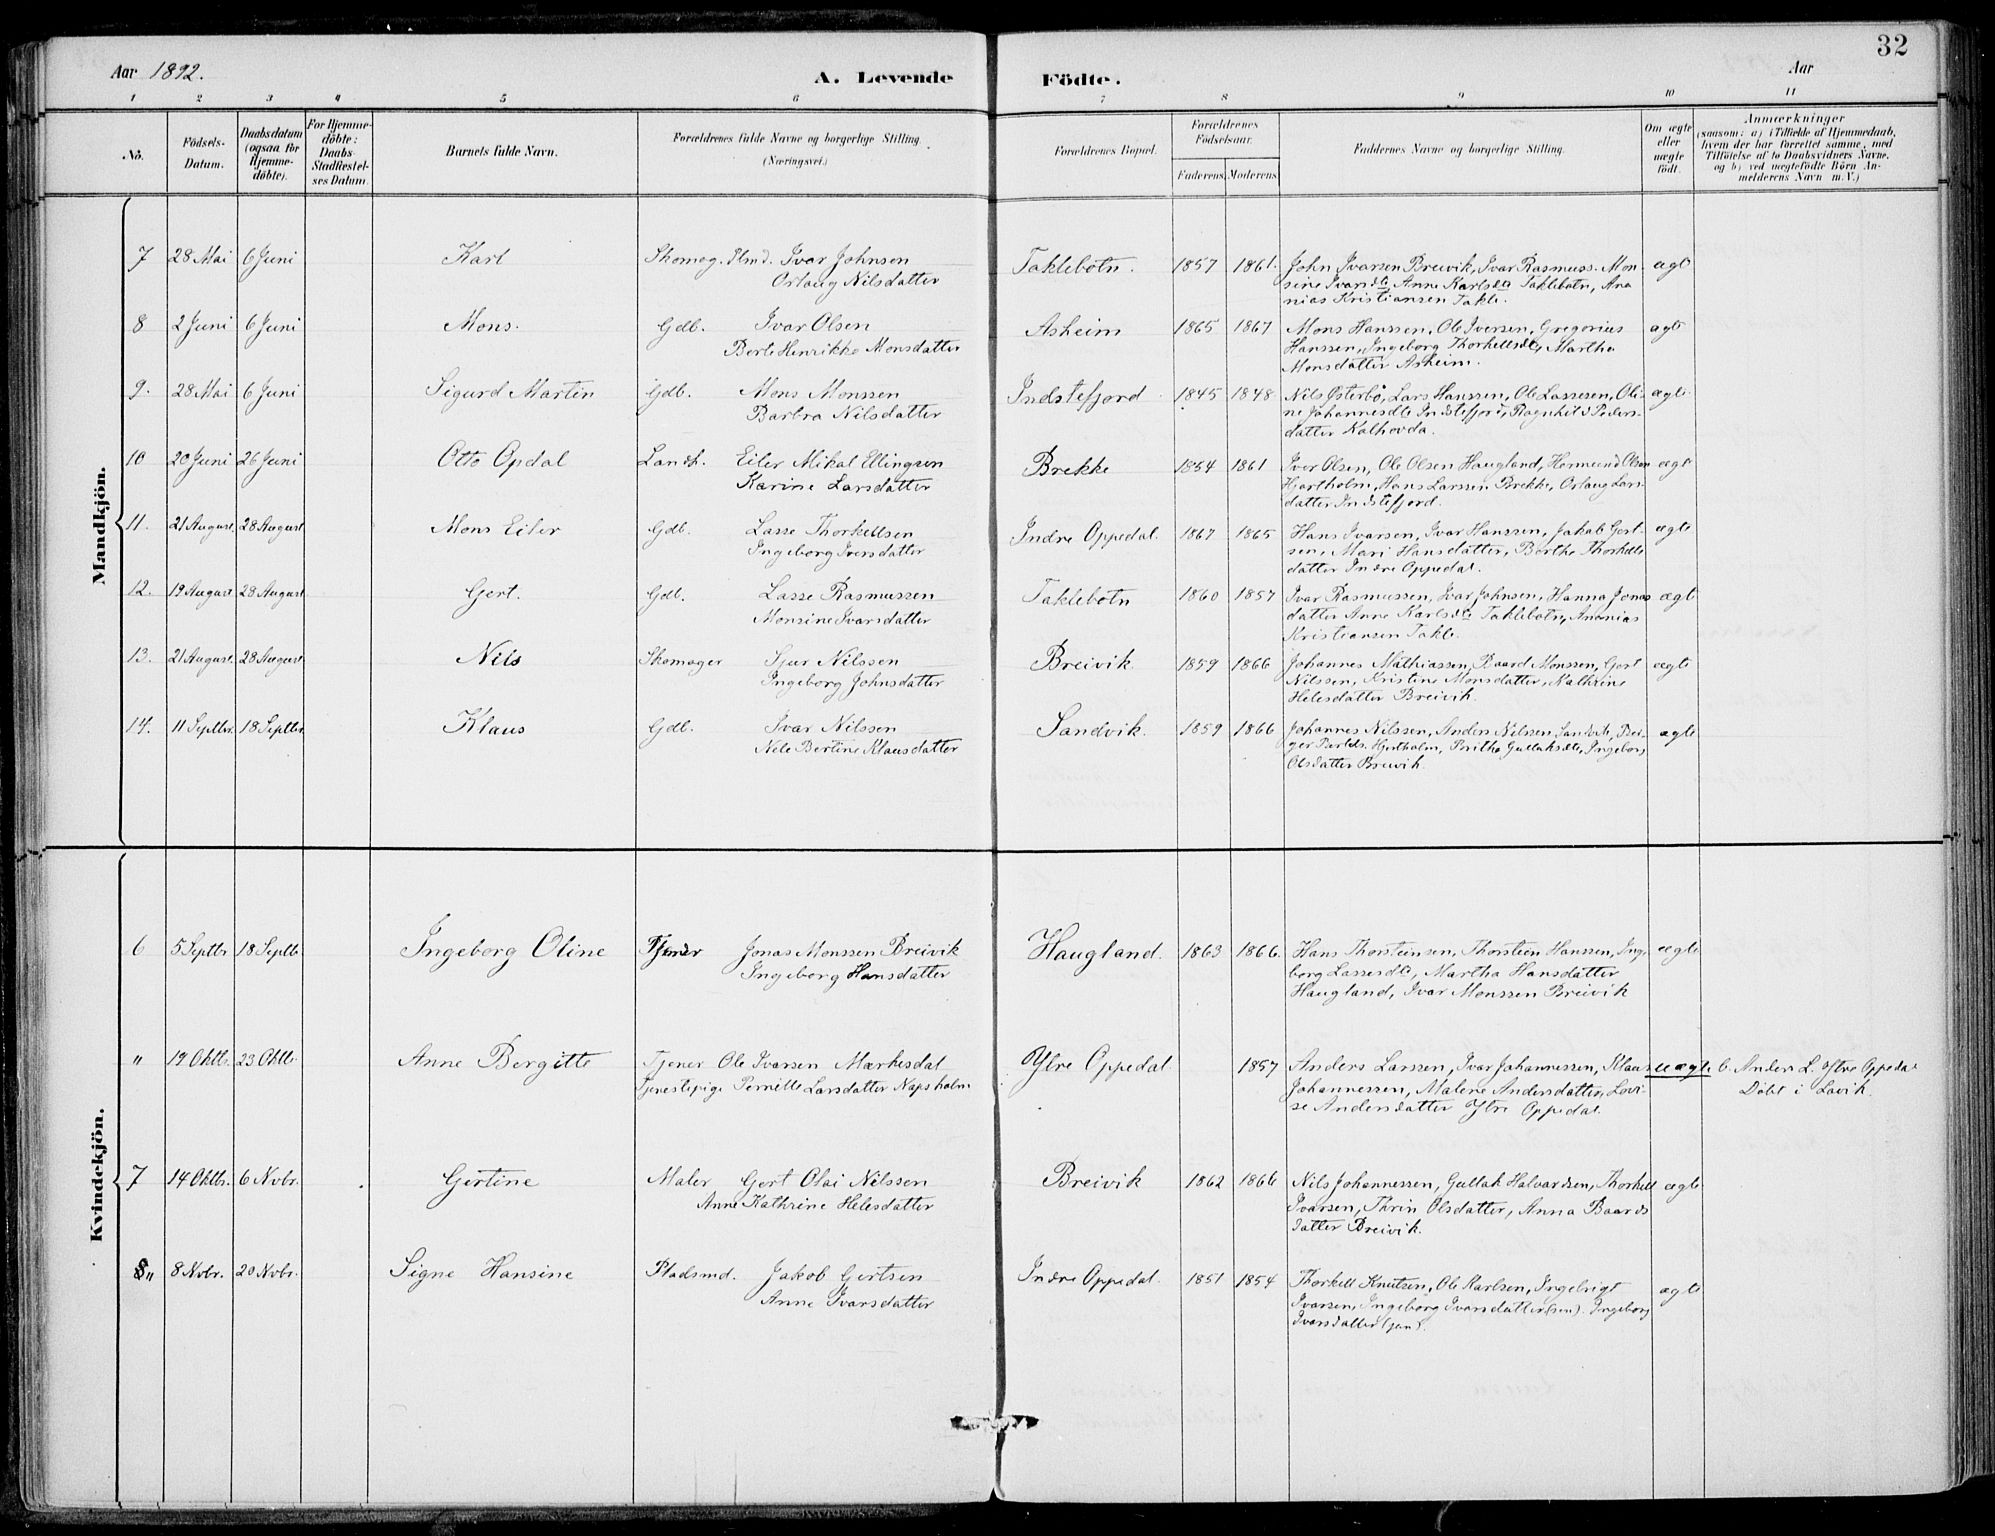 32
Aar 1892.
A. Levende Födte.
Aar
1 2 3 4 5 6 7 8 9 10 11
No.
Födsels-
Datum.
Daabsdatum
(ogsaa for
Hjemme-
döbte).
For Hjemme-
döbte:
Daabs-
Stadfæstel-
ses Datum.
Barnets fulde Navn.
Forældrenes fulde Navne og borgerlige Stilling
(Næringsvei.)
Forældrenes Bopæl.
Forældrenes
Födselsaar.
Faderens. Moderens.
Faddernes Navne og borgerlige Stilling.
Om ægte
eller
uægte
födt.
Anmærkninger
(saasom: a) i Tilfælde af Hjemmedaab,
hvem der har forrettet samme, med
Tilföielse af to Daabsvidners Navne,
og b) ved uægtefödte Börn An-
melderens Navn m.V.)
Mandkjön.
7 28 Mai 6 Juni Karl Skomag. Plmd. Ivar Johnsen Taklebotn. 1857 1861. John Ivarsen Breivik, Ivar Rasmuss. Mon- ægt
Orlaug Nilsdatter sine Ivarsdtr Anne Karlsdtr Taklebotn, Ana
nias Kristiansen Takle.
8 2 Juni 6 Juni Mons. Gdb. Ivar Olsen Asheim 1865 1867 Mons Hanssen, Ole Iversen, Gregorius ægt
Berte Henrikke Monsdatter Hanssen, Ingeborg Thorkellsdtr, Martha
Monsdatter Asheim.
9. 28 Mai 6 Juni Sigurd Martin Gdb. Mons Monssen Indstefjord 1845 1848 Nils Østerbø, Lars Hanssen, Ole Lassesen, Oli- ægte
Barbra Nilsdatter ne Johannesdtr Indstefjord, Ragnhild Peders-
datter Kalhovda.
10 20 Juni 26 Juni Otto Opdal Landh. Eiler Mikal Ellingsen Brekke 1854 1861 Iver Olsen, Ole Olsen Haugland, Hermund Olsen ægt
Karine Larsdatter Hjortholm, Hans Larssen Brekke, Orlaug Lars-
datter Indstefjord.
11. 21 August. 28 August Mons Eiler Gdb. Lasse Thorkellsen Indre Oppedal. 1867 1865 Hans Ivarsen, Ivar Hanssen, Jakob Gert- ægte
Ingeborg Iversdatter sen, Mari Hansdatter, Berthe Thorkells
datter Indre Oppedal.
12. 19 August. 28 August. Gert. Gdb. Lasse Rasmussen Taklebotn 1860 1857 Ivar Rasmussen, Ivar Johnsen, Hanna Jonas ægt
Monsine Ivarsdatter datter Anne Karlsdtr Taklebotn, Ananias
Kristiansen Takle.
13. 21 August. 28 August. Nils Skomager Sjur Nilssen Breivik. 1859 1866 Johannes Mathiassen, Baard Monssen, Gert ægte
Ingeborg Johnsdatter Nilssen, Kristine Monsdatter, Kathrine
Helesdatter Breivik.
14. 11 Septbr. 18 Septbr. Klaus Gdb. Ivar Nilssen Sandvik. 1859 1866 Johannes Nilssen, Anders Nilssen Sandvik, Bir- ægte
Nele Bertine Klausdatter ger Bertels. Hjortholm, Britha Gullaksdtr, Ingeborg
Olsdatter Breivik.
Kvindekjön.
6 5 Septbr 18 Septb. Ingeborg Oline Tjener Jonas Monssen Breivik Haugland. 1863 1866. Hans Thorsteinsen, Thorstein Hanssen, Inge- ægte
Ingeborg Hansdatter borg Lassesdtr, Martha Hansdatter
Haugland, Ivar Monssen Breivik
" 19 Oktbr. 23 Oktb. Anne Bergitte Tjener Ole Ivarsen Mærkesdal Ytre Oppedal. 1857 Anders Larssen, Ivar Johannessen, Klaus uægte b. Anders L. Ytre Oppedal
Tjenestepige Pernille Larsdatter Napsholm Johannessen, Malene Andersdatter, Lovi- Döbt i Lavik.
se Andersdatter Ytre Oppedal.
7 14 Oktbr. 6 Novbr. Gertine Maler Gert Olai Nilssen Breivik 1862 1866 Nils Johannessen, Gullak Halvardsen, Thorkell ægte
Anne Kathrine Helesdatter Ivarsen, Thrin Olsdatter, Anna Baards
datter Breivik.
8" 8 Novbr. 20 Novbr. Signe Hansine Pladsmd. Jakob Gertsen Indre Oppedal. 1851 1854 Thorkell Knutsen, Ole Karlsen, Ingebrigt ægte
Anne Ivarsdatter Ivarsen, Ingeborg Ivarsdatter (sen). Ingeborg
Ivarsdatter (jun).